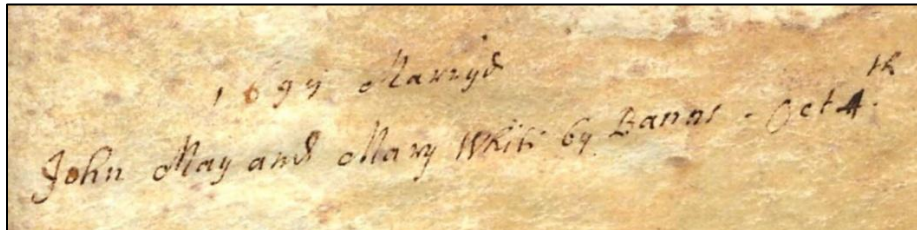 1697 Marryd
John May and Mary White by Banns - Oct 4th.